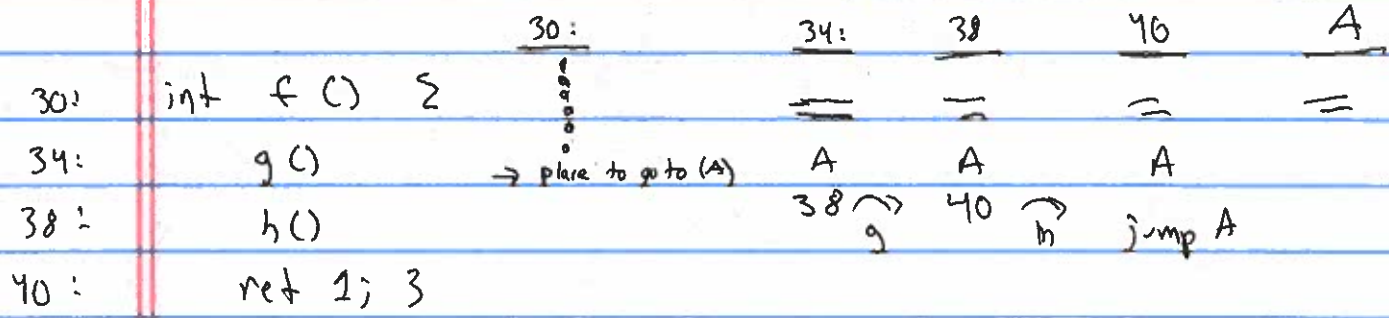 30: 34: 38 40 A
30: int f () {
34: g () → place to go to (A) A A A
38: h() 38 g 40 h jump A
40: ret 1; }